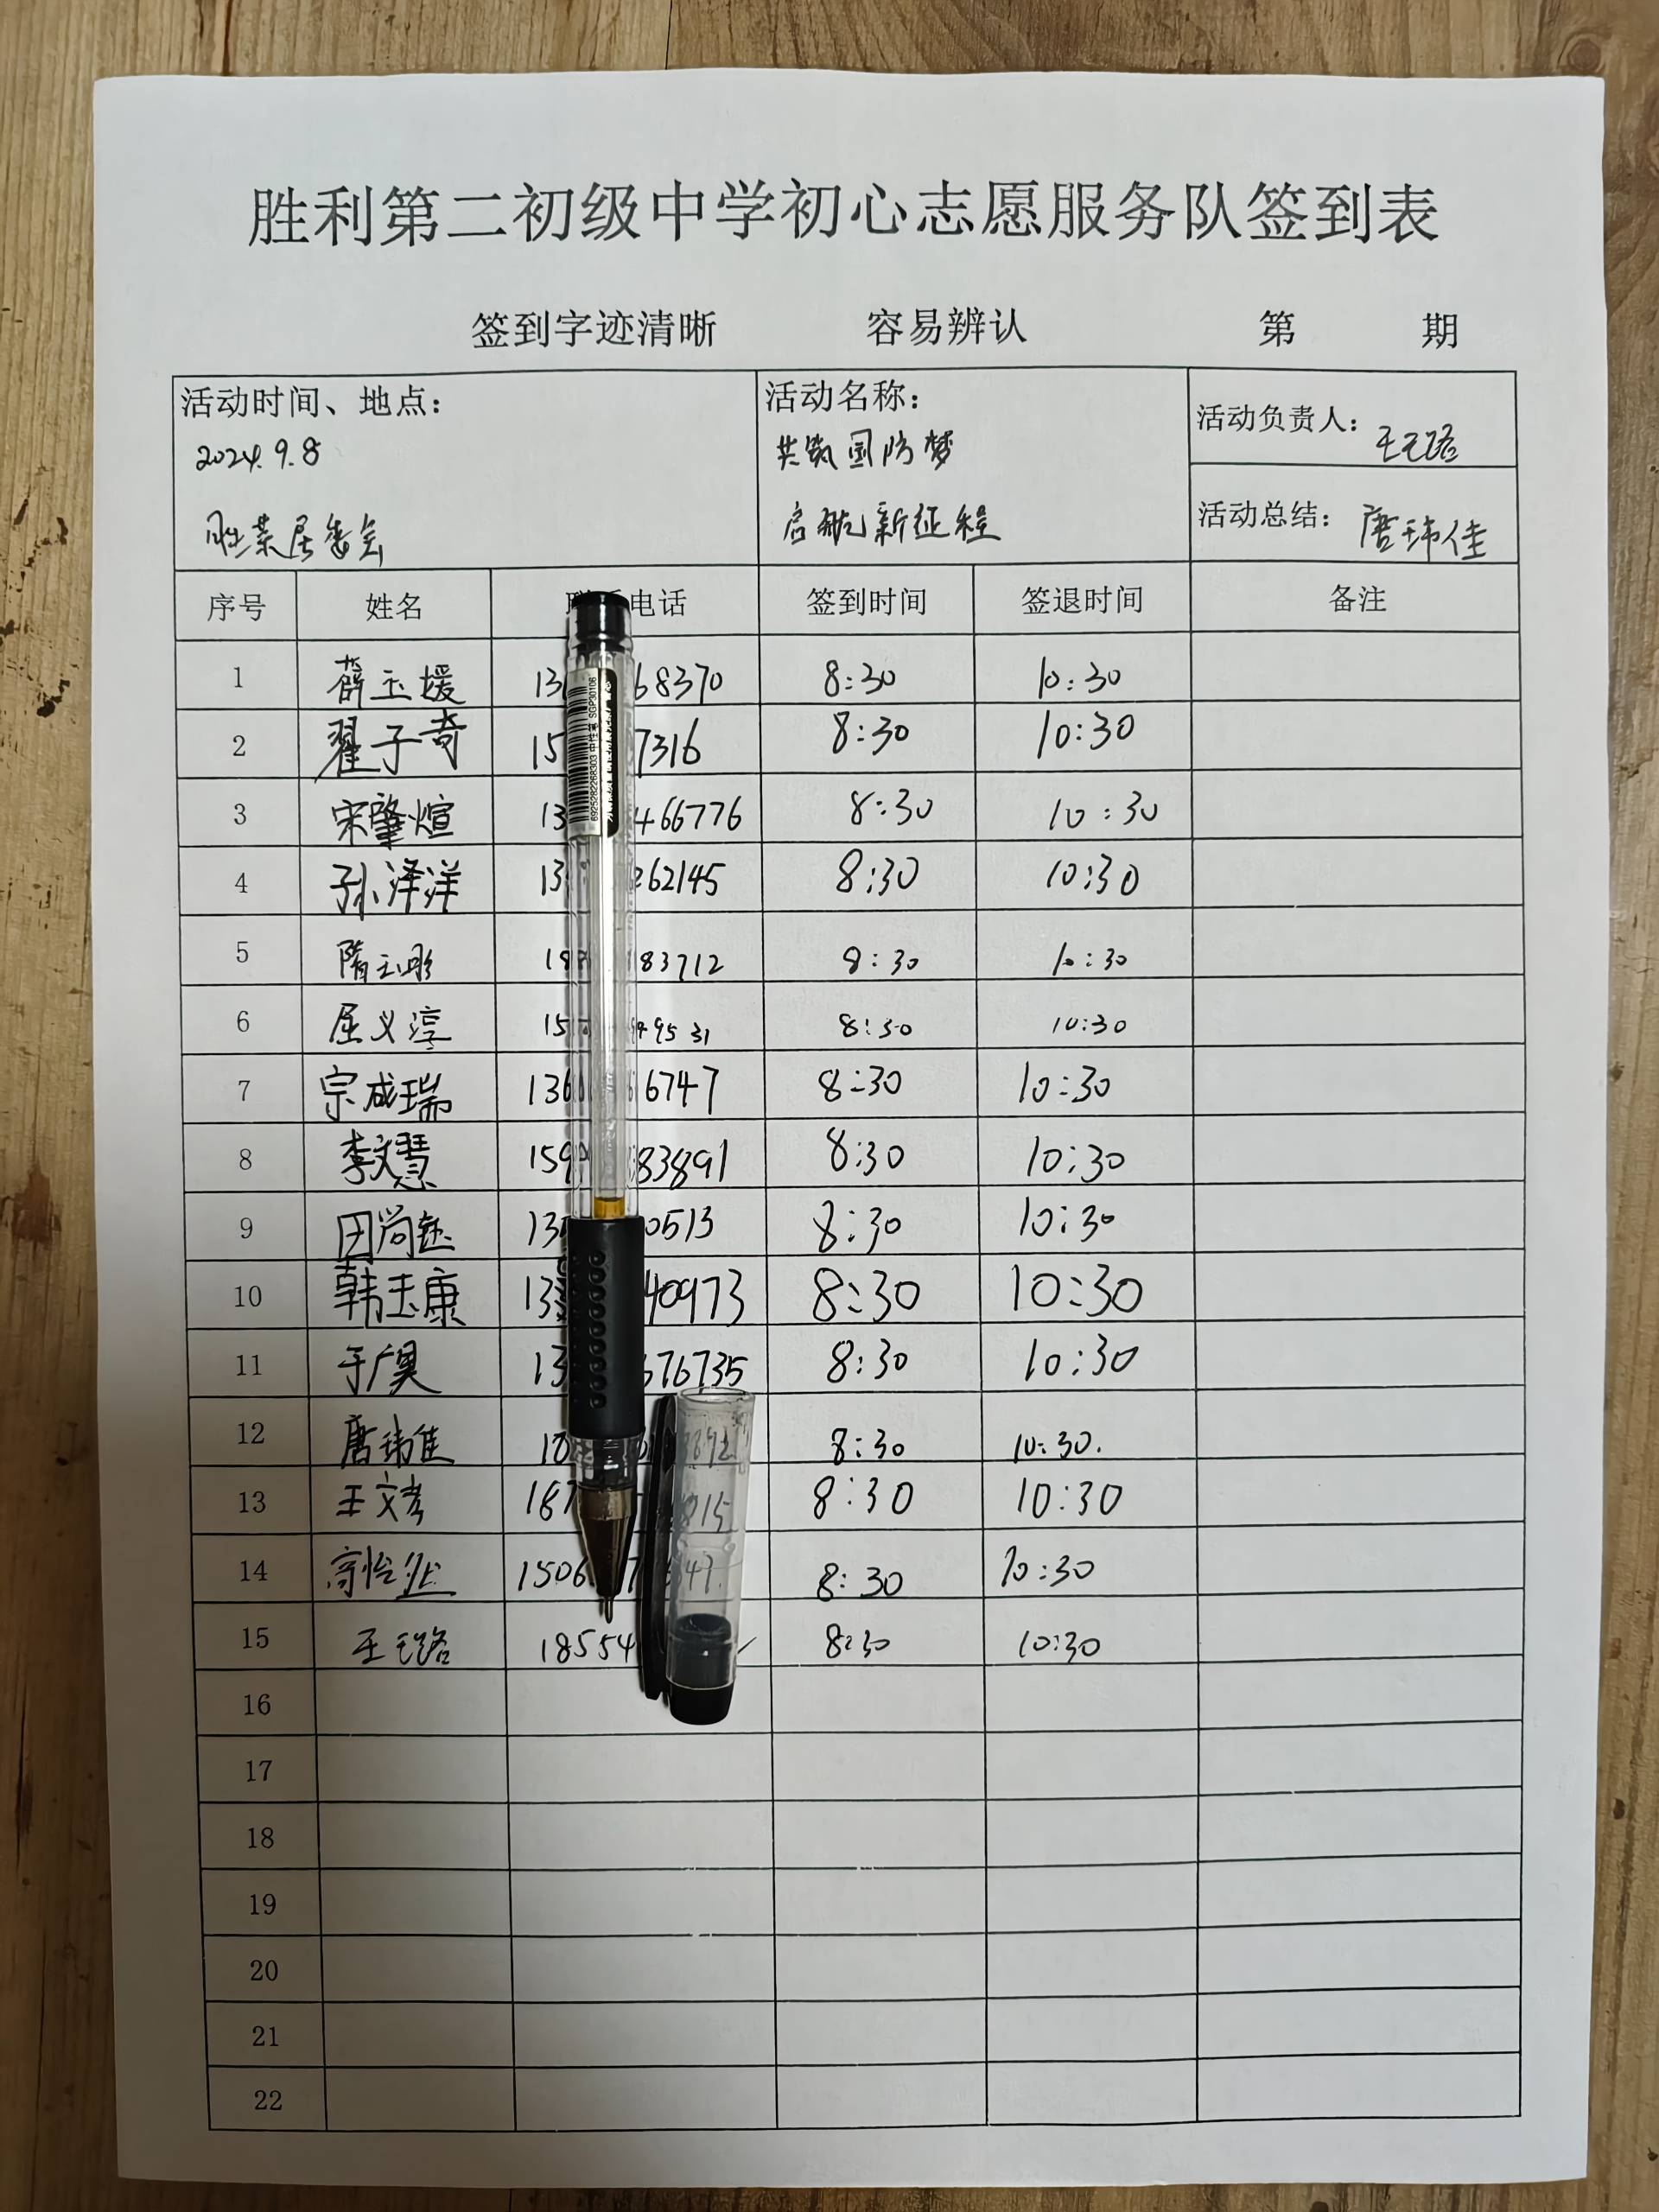 胜利第二初级中学初心志愿服务队签到表
签到字迹清晰 容易辨认 第 期
活动时间、地点：
2024.9.8
胜荣居委会
活动名称：
共筑国防梦
启航新征程
活动负责人：
活动总结：唐玮佳
序号 姓名 电话 签到时间 签退时间 备注
1 薛玉媛 13 68370 8:30 10:30
2 翟子奇 15 7316 8:30 10:30
3 宋肇煊 13 466776 8:30 10:30
4 孙泽洋 13 262145 8:30 10:30
5 隋玉彤 18 83712 8:30 10:30
6 屈义淳 15 49531 8:30 10:30
7 宗成瑞 136 6747 8:30 10:30
8 李文慧 159 83891 8:30 10:30
9 田尚钰 13 0513 8:30 10:30
10 韩玉康 133 40973 8:30 10:30
11 于广昊 13 676735 8:30 10:30
12 唐玮佳 8:30 10:30.
13 王文孝 187 8:30 10:30
14 1506 8:30 10:30
15 18554 8:30 10:30
16
17
18
19
20
21
22
6925282268303 中性笔 SGP30106